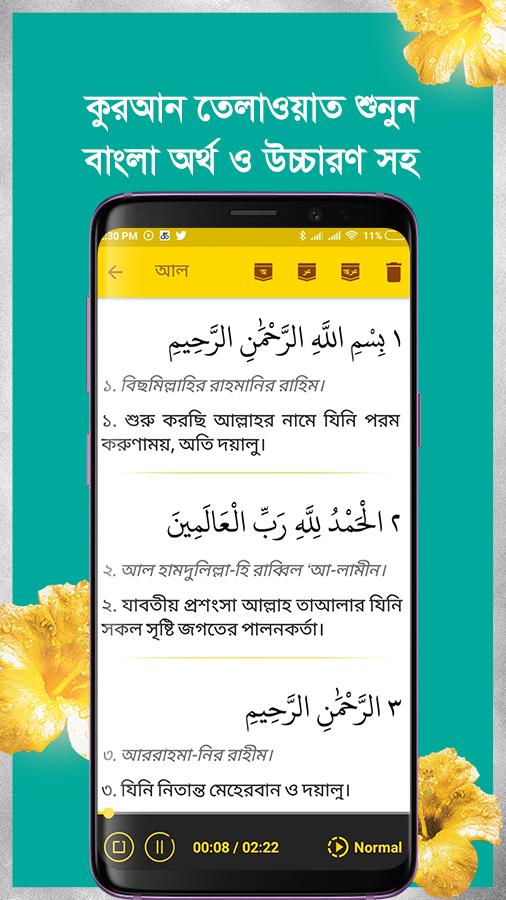 কুরআন তেলাওয়াত শুনুন
বাংলা অর্থ ও উচ্চারণ সহ
:30 PM
11%
আল
١ بِسْمِ اللَّهِ الرَّحْمَٰنِ الرَّحِيمِ
১. বিছমিল্লাহির রাহমানির রাহিম।
১. শুরু করছি আল্লাহর নামে যিনি পরম
করুণাময়, অতি দয়ালু।
٢ الْحَمْدُ لِلَّهِ رَبِّ الْعَالَمِينَ
২. আল হামদুলিল্লা-হি রাব্বিল ‘আ-লামীন।
২. যাবতীয় প্রশংসা আল্লাহ তাআলার যিনি
সকল সৃষ্টি জগতের পালনকর্তা।
٣ الرَّحْمَٰنِ الرَّحِيمِ
৩. আররাহমা-নির রাহীম।
৩. যিনি নিতান্ত মেহেরবান ও দয়ালু।
00:08 / 02:22
Normal